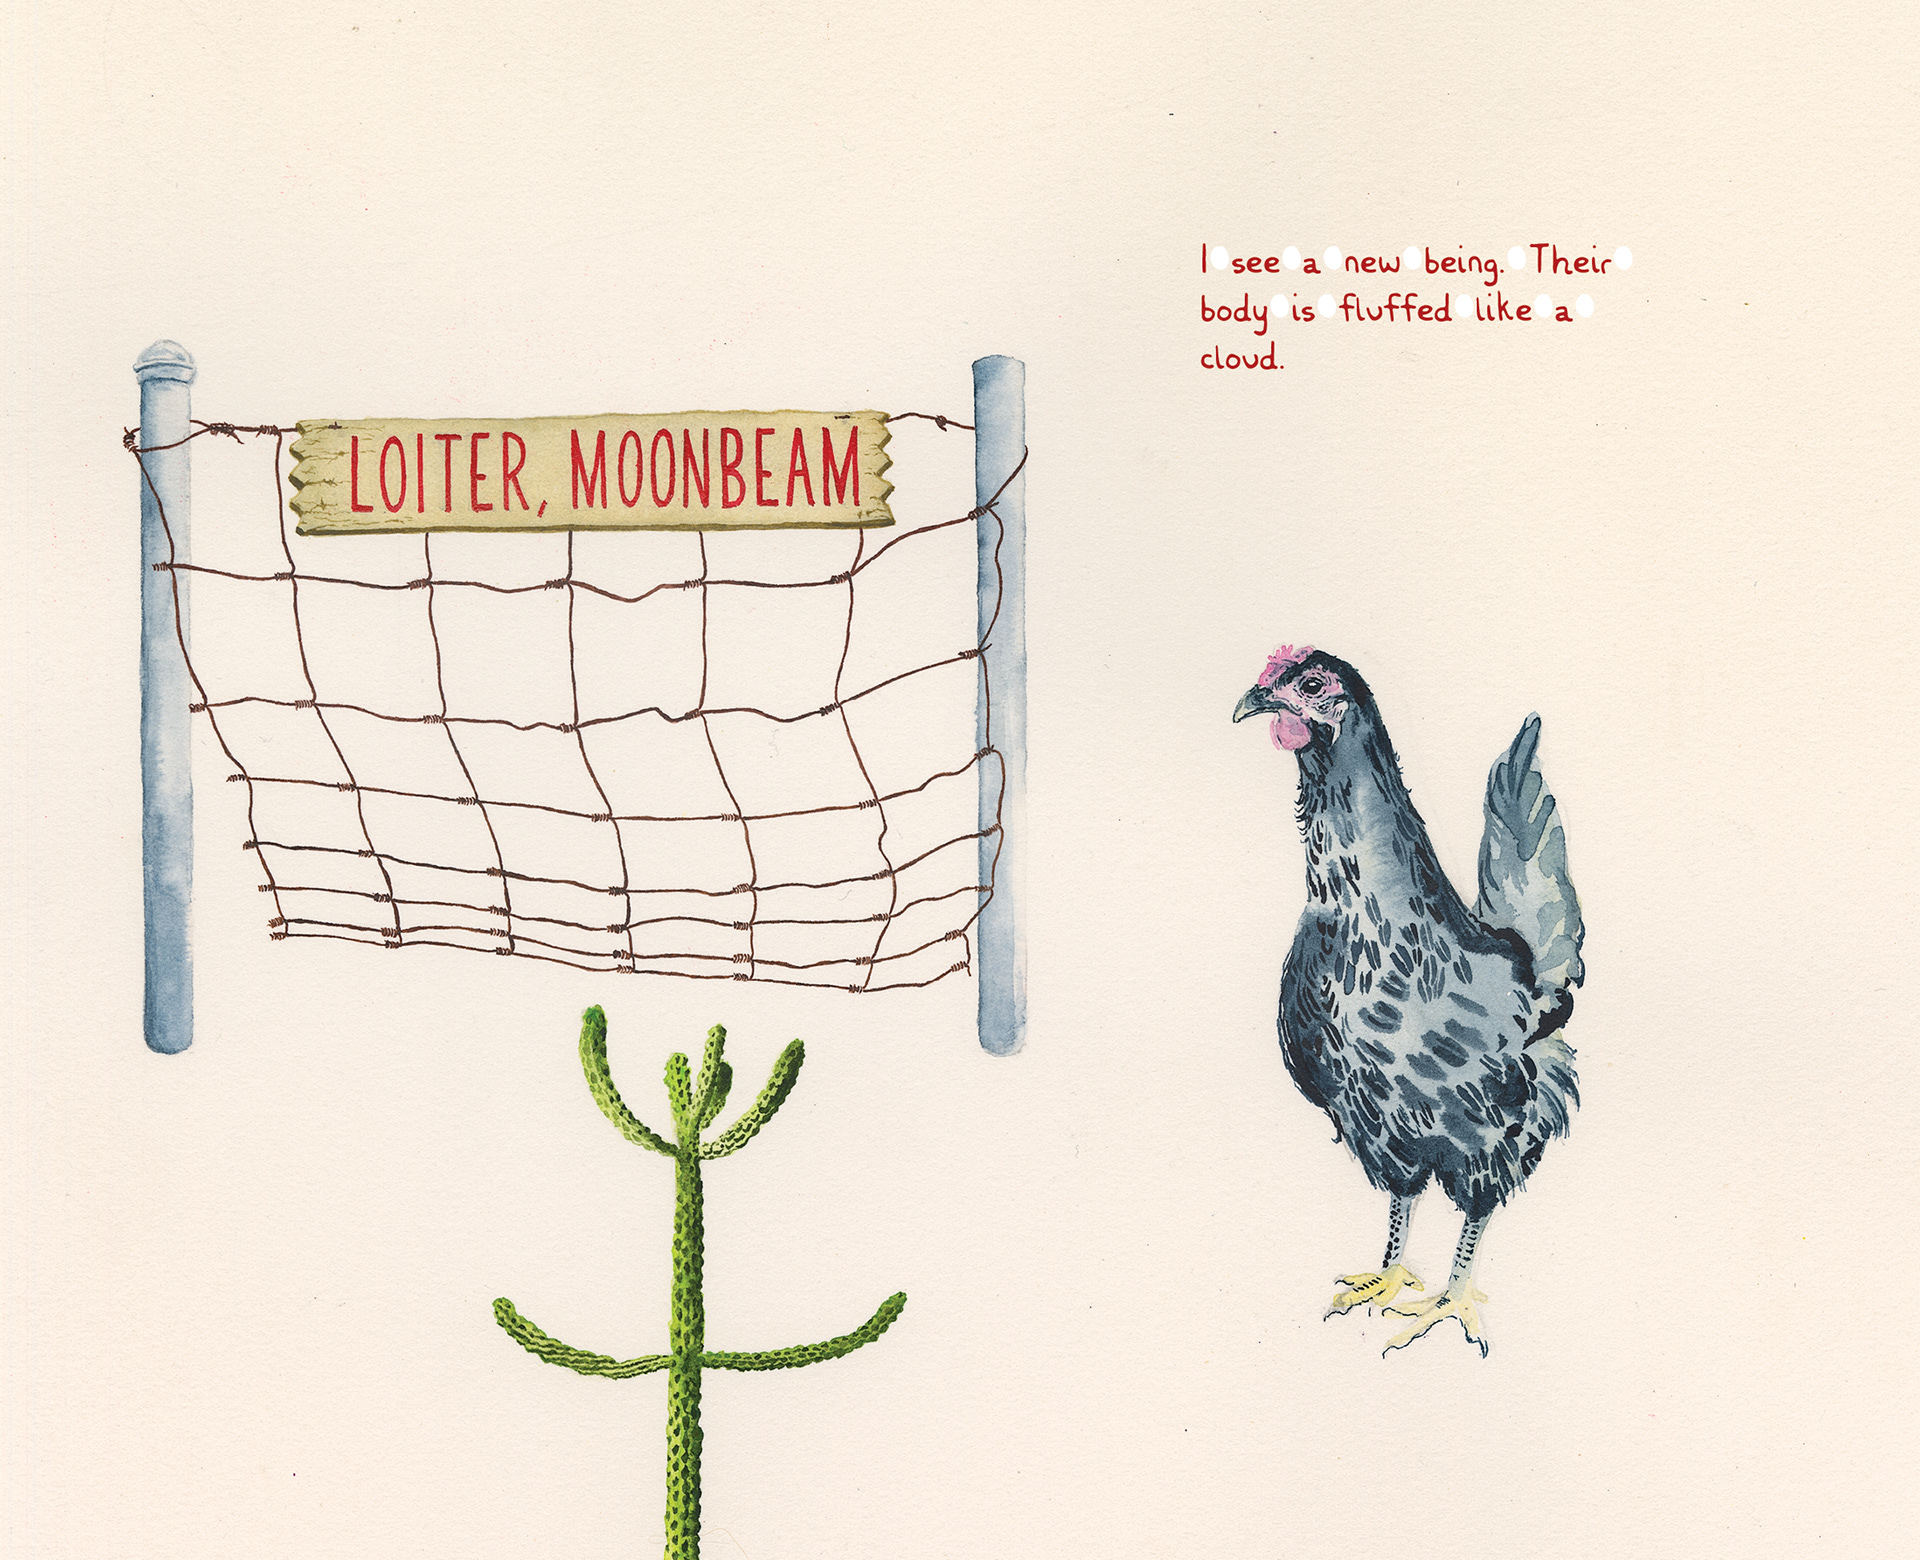 LOITER, MOONBEAM
I see a new being. Their
body is fluffed like a
cloud.